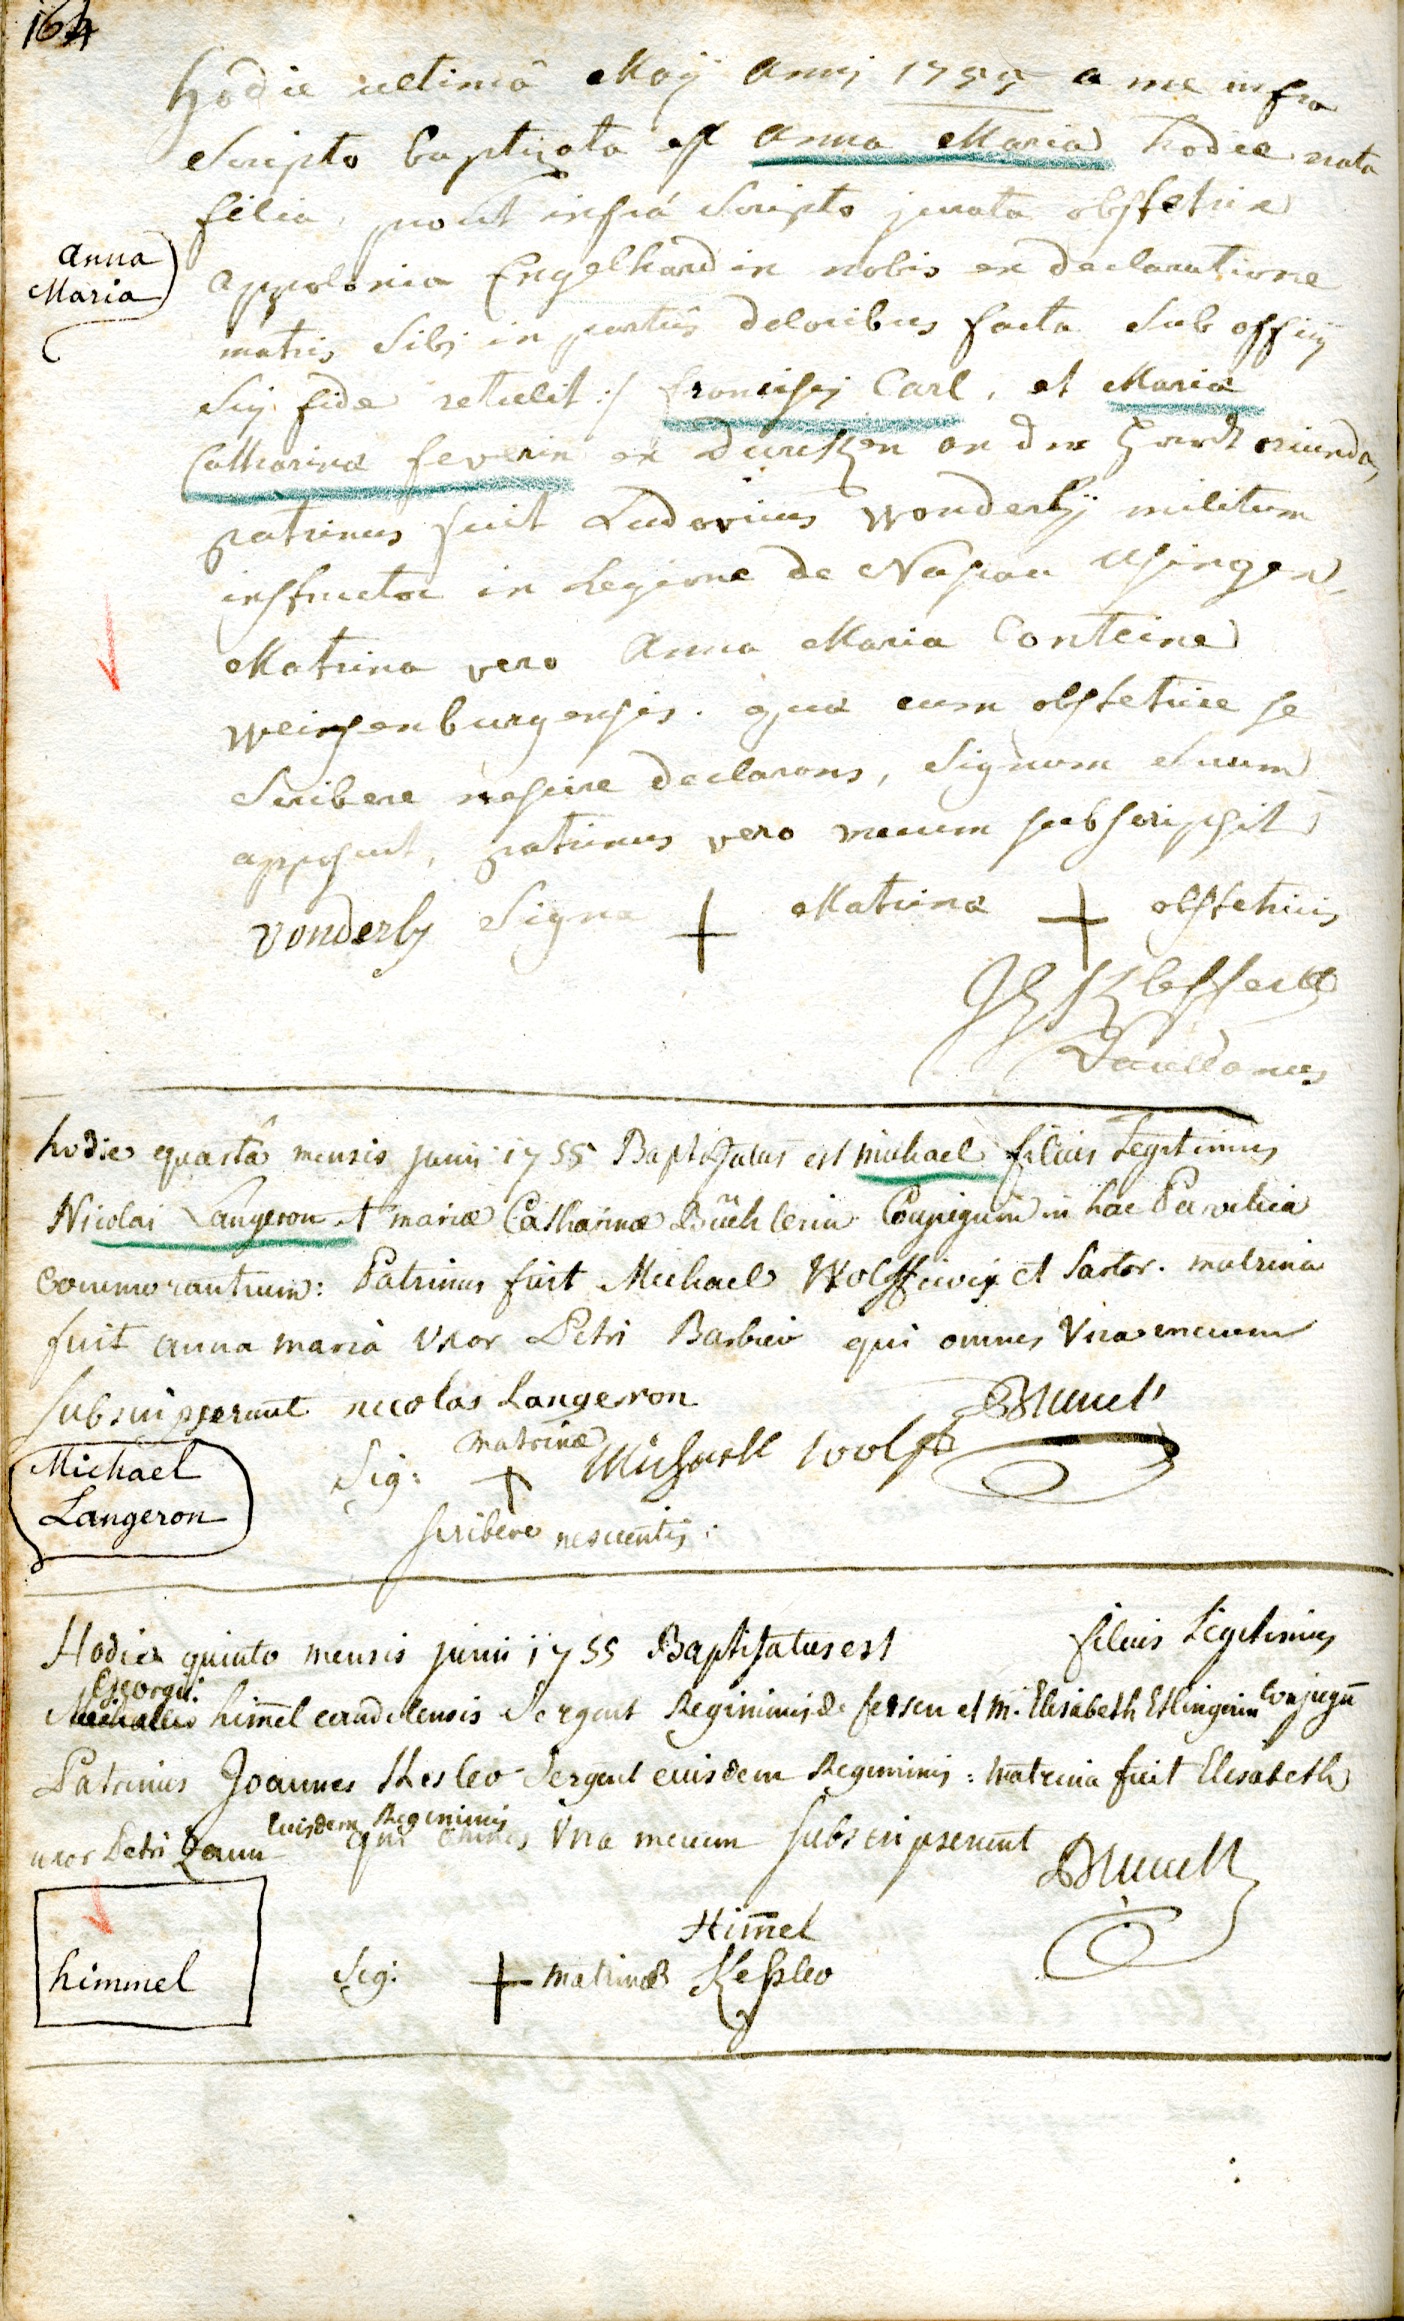 164
Hodie ultimâ Maÿ Anni 1755 a me infra
Scripto baptizata est Anna Maria hodie nata
filia, prout infrá Scripto jurata obstetrix
Anna
Maria
Appolonia Engelhardin nobis ex declaratione
matris Sibi in partûs doloribus facta Sub officÿ
Sui fide retulit :/ Francisci Carl, et Mariæ
Catharinæ Feverin ex an der Hardt oriunda,
patrinus fuit Ludovicus Wonderlÿ militum
instructor in Legione de Nassau Usingen,
Matrina vero Anna Maria Conteine
Weissenburgensis. quæ cum obstetrice se
Scribere nescire declarans, Signum Suum
apposuit, patrinus vero mecum subscripsit
Vonderly Signa + Matrinæ + obstetricis

hodie quartâ mensis junii 1755 Baptisatus est michael filius Legitimus
Nicolai Langeron et mariæ Catharinæ Büchlerin Conjugum in hac Parochia
Commorantium: Patrinus fuit Michael Wolff civis et Sartor. matrina
fuit anna maria Uxor Petri Barbier qui omnes Una mecum
subscripserunt nicolas Langeron
matrinæ
Sig: + Michaell wolff
Michael
Langeron
scribere nescientis:
Hodie quinto mensis junii 1755 Baptisatus est filius Legitimus
Georgii
Michaelis himel Sergent Regiminis de fersen et M. Elisabeth Etlingerin Conjugu
Patrinus Joannes Kesleo Sergent eiusdem Regiminis: matrina fuit Elisabeth
Eiusdem Regiminis
uxor Petri Zaun qui omnes Una mecum subscripserunt
Himel
himmel
Sig: + matrinæ Kesleo